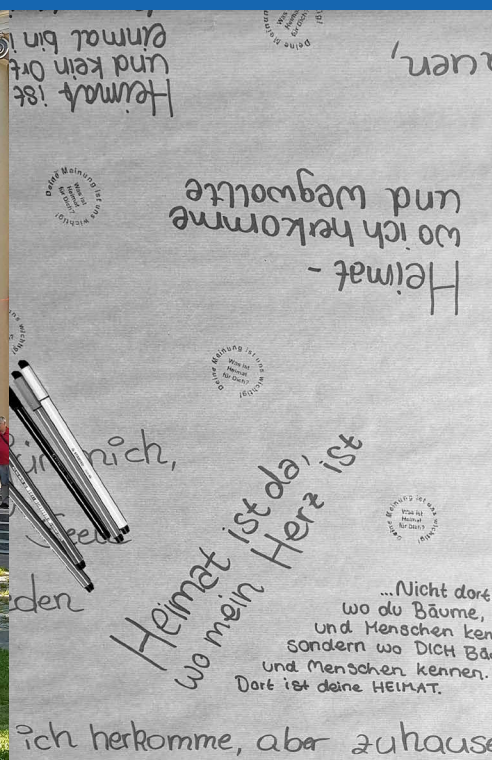 Heimat ist
und kein Ort
Deine Meinung ist uns wichtig!
Was ist
Heimat
für Dich?
Heimat -
wo ich herkomme
und wegwollte
Deine Meinung ist uns wichtig!
Was ist
Heimat
für Dich?
mich,
Heimat ist da,
wo mein Herz ist
Deine Meinung ist uns wichtig!
Was ist
Heimat
für Dich?
den
...Nicht dort
wo du Bäume,
und Menschen
sondern wo DICH
und Menschen kennen.
Dort ist deine HEIMAT.
ich herkomme, aber zuhause